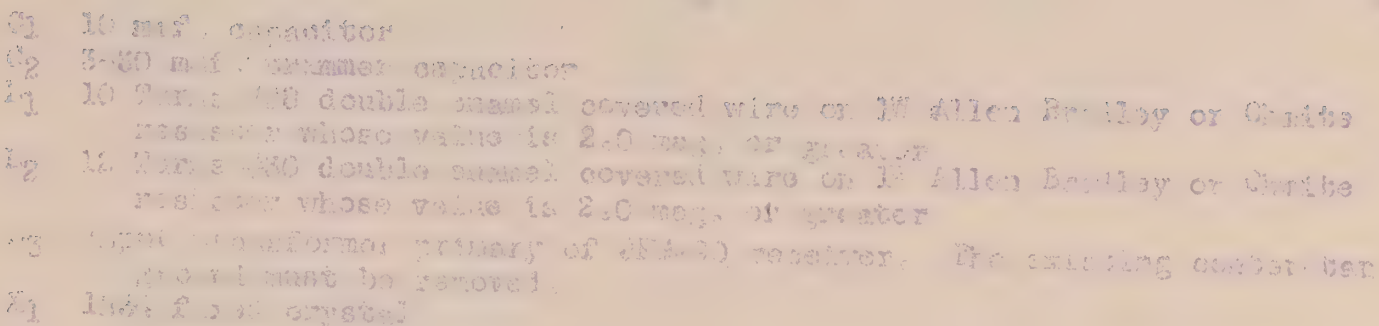 C1 10 mmf. capacitor
C2 3-30 mmf. trimmer capacitor
L1 10 Turns #30 double enamel covered wire on 1W Allen Bradley or Ohmite
resistor whose value is 2.0 meg. or greater
L2 12 Turns #30 double enamel covered wire on 1W Allen Bradley or Ohmite
resistor whose value is 2.0 meg. or greater
L3 Input transformer primary of receiver. The existing center tap
ground must be removed.
X1 crystal